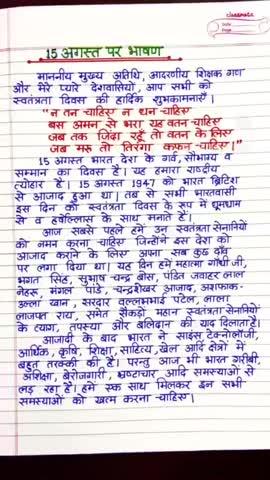 classmate
Date
Page
15 अगस्त पर भाषण
माननीय मुख्य अतिथि, आदरणीय शिक्षक गण
और मेरे प्यारे देशवासियों, आप सभी को
स्वतंत्रता दिवस की हार्दिक शुभकामनाएँ।
"न तन चाहिए न धन चाहिए
बस अमन से भरा यह वतन चाहिए
जब तक जिंदा रहूँ तो वतन के लिए
जब मरू तो तिरंगा कफन चाहिए।"
15 अगस्त भारत देश के गर्व, सौभाग्य व
सम्मान का दिवस है। यह हमारा राष्ट्रीय
त्योहार है। 15 अगस्त 1947 को भारत ब्रिटिश
से आजाद हुआ था। तब से सभी भारतवासी
इस दिन को स्वतंत्रता दिवस के रूप में धूमधाम
से व हर्षोल्लास के साथ मनाते हैं।
आज सबसे पहले हमे उन स्वतंत्रता सेनानियों
को नमन करना चाहिए जिन्होंने इस देश को
आजाद कराने के लिए अपना सब कुछ दाँव
पर लगा दिया था। यह दिन हमें महात्मा गाँधी जी,
भगत सिंह, सुभाष चन्द्र बोस, पंडित जवाहर लाल
नेहरू मंगल पांडे, चन्द्रशेखर आजाद, अशफाक-
उल्ला खान, सरदार वल्लभभाई पटेल, लाला
लाजपत राय, समेत सैकड़ो महान स्वतंत्रता सेनानियों
के त्याग, तपस्या और बलिदान की याद दिलाता है।
आजादी के बाद भारत ने साइंस, टेक्नोलॉजी,
आर्थिक, कृषि, शिक्षा, साहित्य, खेल आदि क्षेत्रों में
बहुत तरक्की की है। परन्तु आज भी भारत गरीबी,
अशिक्षा, बेरोजगारी, भ्रष्टाचार आदि समस्याओं से
लड़ रहा है। हमें एक साथ मिलकर इन सभी
समस्याओं को खत्म करना चाहिए।